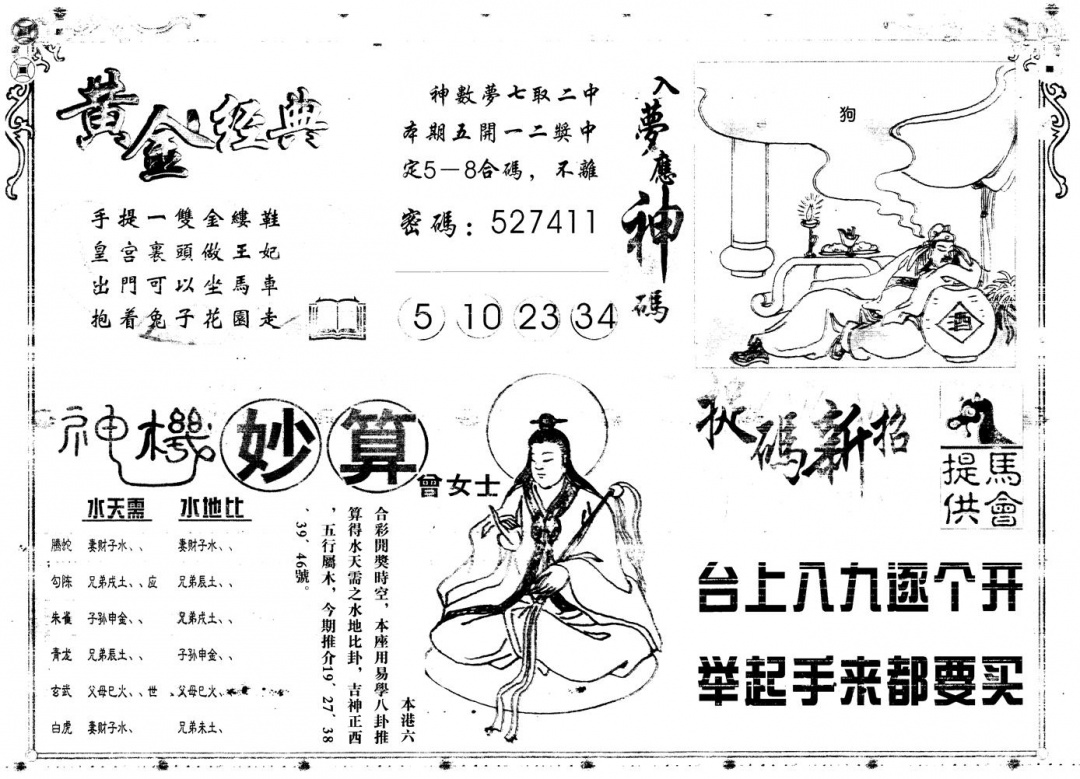 黃金經典
手提一雙金縷鞋
皇宮裏頭做王妃
出門可以坐馬車
抱着兔子花園走
神數夢七取二中
本期五開一二獎中
定5－8合碼，不離
密碼：527411
5 10 23 34
入夢應神碼
狗
酒
神機妙算
曾女士
水天需 水地比
騰蛇 妻財子水、、 妻財子水、、
勾陈 兄弟戌土、、应 兄弟辰土、、
朱雀 子孙申金、、 兄弟戌土、、
青龙 兄弟辰土、、 子孙申金、、
玄武 父母巳火、、世 父母巳火、
白虎 妻財子水、 兄弟未土、
本港六
合彩開獎時空，本座用易學八卦推
算得水天需之水地比卦，吉神正西
，五行屬木，今期推介19′27′38
′39′46號。
狄碼新招
馬會
提供
台上八九逐个开
举起手来都要买